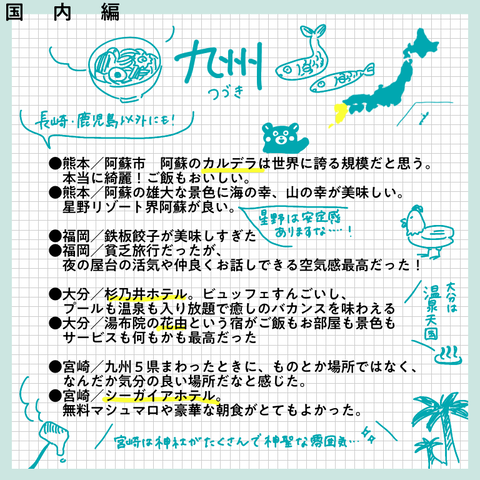 国内編
九州
つづき
長崎・鹿児島以外にも!
●熊本/阿蘇市 阿蘇のカルデラは世界に誇る規模だと思う。
本当に綺麗!ご飯もおいしい。
●熊本/阿蘇の雄大な景色に海の幸、山の幸が美味しい。
星野リゾート界阿蘇が良い。
星野は安定感
ありますな…!
●福岡/鉄板餃子が美味しすぎた
●福岡/貧乏旅行だったが、
夜の屋台の活気や仲良くお話しできる空気感最高だった!
●大分/杉乃井ホテル。ビュッフェすんごいし、
プールも温泉も入り放題で癒しのバカンスを味わえる
●大分/湯布院の花由という宿がご飯もお部屋も景色も
サービスも何もかも最高だった
大分は
温泉天国
●宮崎/九州5県まわったときに、ものとか場所ではなく、
なんだか気分の良い場所だなと感じた。
●宮崎/シーガイアホテル。
無料マシュマロや豪華な朝食がとてもよかった。
宮崎は神社がたくさんで神聖な雰囲気…